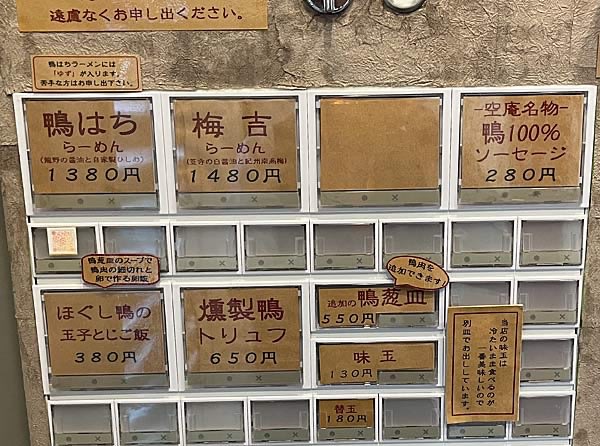 遠慮なくお申し出ください。
鴨はちラーメンには
「ゆず」が入ります。
苦手な方はお申し出下さい。
鴨はち
らーめん
(龍野の醤油と自家製ひしお)
1380円
梅吉
らーめん
1480円
-空庵名物-
鴨100%
ソーセージ
280円
鴨葱皿のスープで
鴨肉の細切れと
卵で作る卵飯
ほぐし鴨の
玉子とじご飯
380円
燻製鴨
トリュフ
650円
鴨肉を
追加できます
追加の鴨葱皿
550円
味玉
130円
替玉
180円
当店の味玉は
冷たいまま食べるのが
一番美味しいので
別皿でお出ししています。